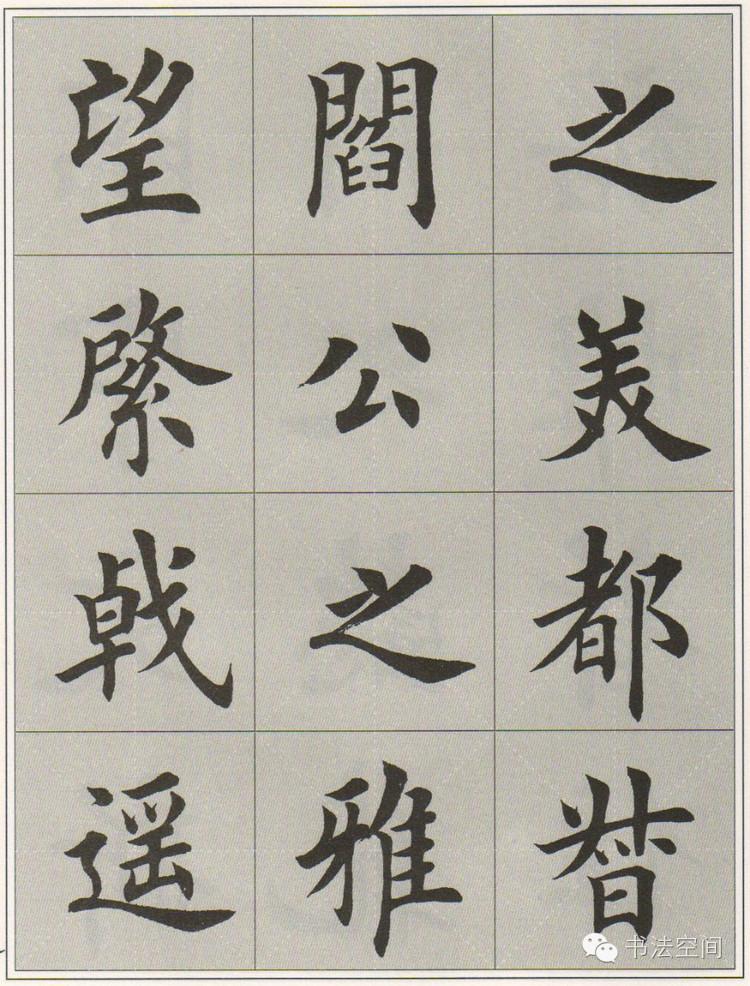 之美都督
閻公之雅
望綮戟遥
书法空间